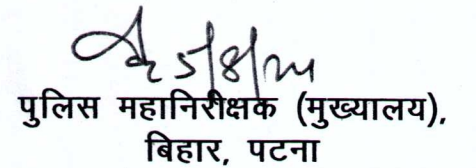 5/8/24
पुलिस महानिरीक्षक (मुख्यालय),
बिहार, पटना